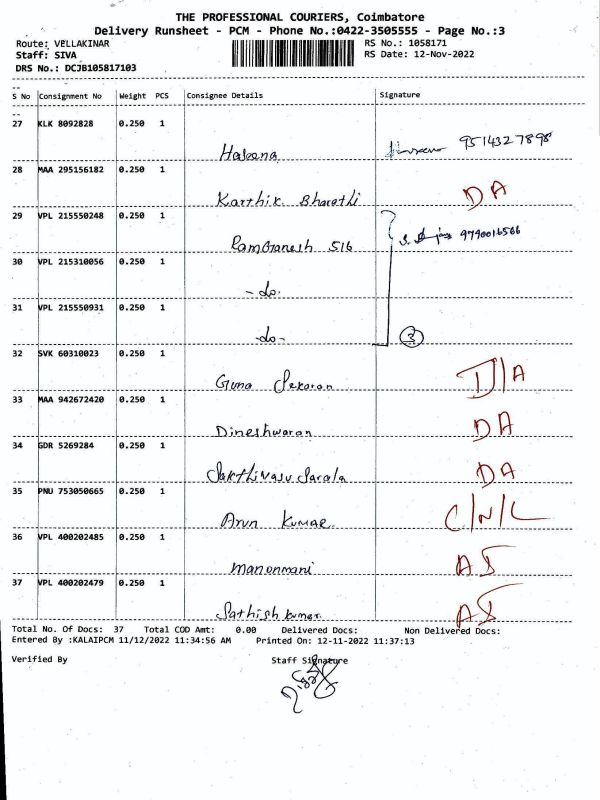 THE PROFESSIONAL COURIERS, Coimbatore
Delivery Runsheet - PCM - Phone No.:0422-3505555 - Page No.:3
Route: VELLAKINAR RS No.: 1058171
Staff: SIVA RS Date: 12-Nov-2022
DRS No.: DCJB105817103
S No Consignment No Weight PCS Consignee Details Signature
27 KLK 8092828 0.250 1
Haleena 9514327898
28 MAA 295156182 0.250 1
Karthik Bharathi DA
29 VPL 215550248 0.250 1
RamGanesh 516 9790016566
30 VPL 215310056 0.250 1
-do-
31 VPL 215550931 0.250 1
-do- 3
32 SVK 60310023 0.250 1
Guna Sekaran D/A
33 MAA 942672420 0.250 1
Dineshwaran DA
34 GDR 5269284 0.250 1
Sakthivasu Sarala DA
35 PNU 753050665 0.250 1
Arun Kumar C/N/L
36 VPL 400202485 0.250 1
Manonmani AS
37 VPL 400202479 0.250 1
Sathishkumar AS
Total No. Of Docs: 37 Total COD Amt: 0.00 Delivered Docs: Non Delivered Docs:
Entered By :KALAIPCM 11/12/2022 11:34:56 AM Printed On: 12-11-2022 11:37:13
Verified By Staff Signature